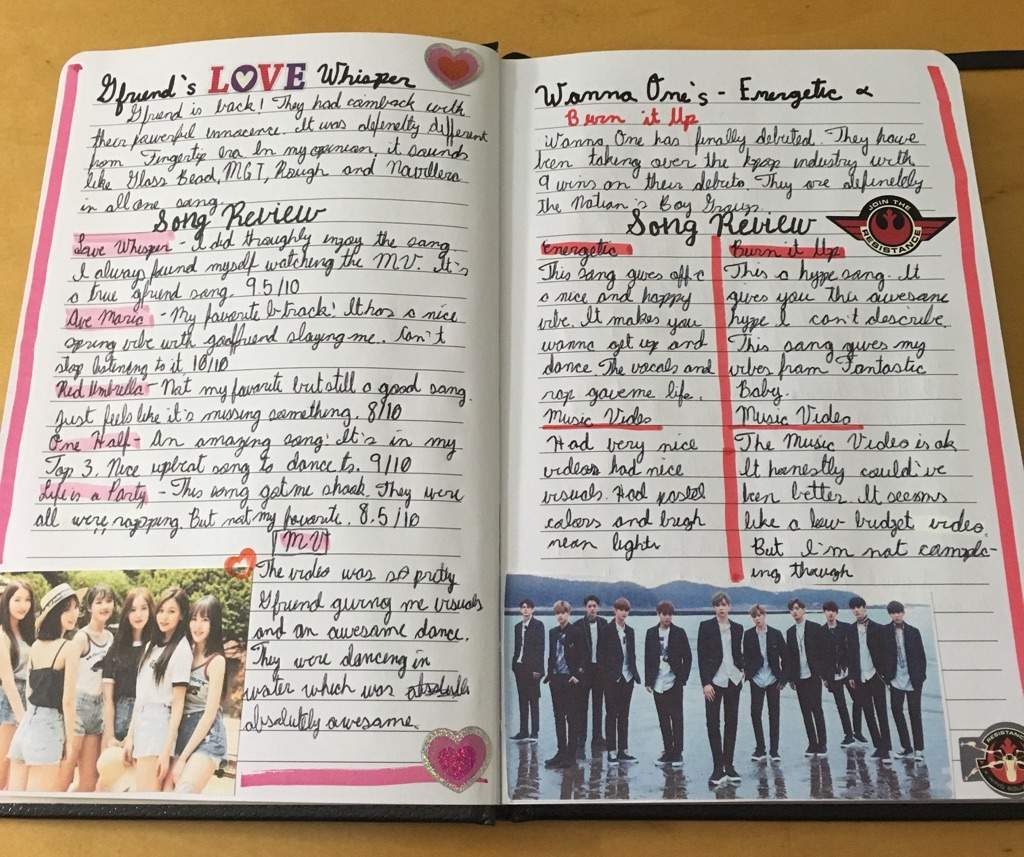 Gfriend's LOVE Whisper
Gfriend is back! They had comback with
their powerful innacence. It was defenetly different
from Fingertip era. In my opinion, it sounds
like Glass Bead, MGT, Rough and Navillera
in all one song.
Song Review
Love Whisper - I did throughly enjoy the song.
I always found myself watching the M.V. It's
a true gfriend song. 9.5/10
Ave Maria - My favorite b-track! It has a nice
spring vibe with godfriend slaying me. Can't
stop listening to it 10/10
Red Umbrella - Not my favorite but still a good song.
Just feels like it's missing something. 8/10
One Half - An amazing song! It's in my
Top 3. Nice upbeat song to dance to. 9/10
Life is a Party - This song got me shook. They were
all were rapping. But not my favorite. 8.5/10
MV
The video was so pretty
Gfriend giving me visuals
and an awesome dance.
They were dancing in
water which was
absolutely awesome.
Wanna One's - Energetic &
Burn it Up
Wanna One has finally debuted. They have
been taking over the kpop industry with
9 wins on their debuts. They are definetely
the Nation's Boy Group.
Song Review
JOIN THE
RESISTANCE
Energetic
This song gives off
a nice and happy
vibe. It makes you
wanna get up and
dance. The vocals and
rap gave me life.
Music Video
Had very nice
videos had nice
visuals. Had pastel
colors and brigh
nean lights
Burn it Up
This a hype song. It
gives you this awesome
hype I can't describe.
This song gives my
vibes from Fantastic
Baby.
Music Video
The Music Video is ok
It honestly could've
been better. It seems
like a low budget video.
But I'm not complain-
ing though
RESISTANCE